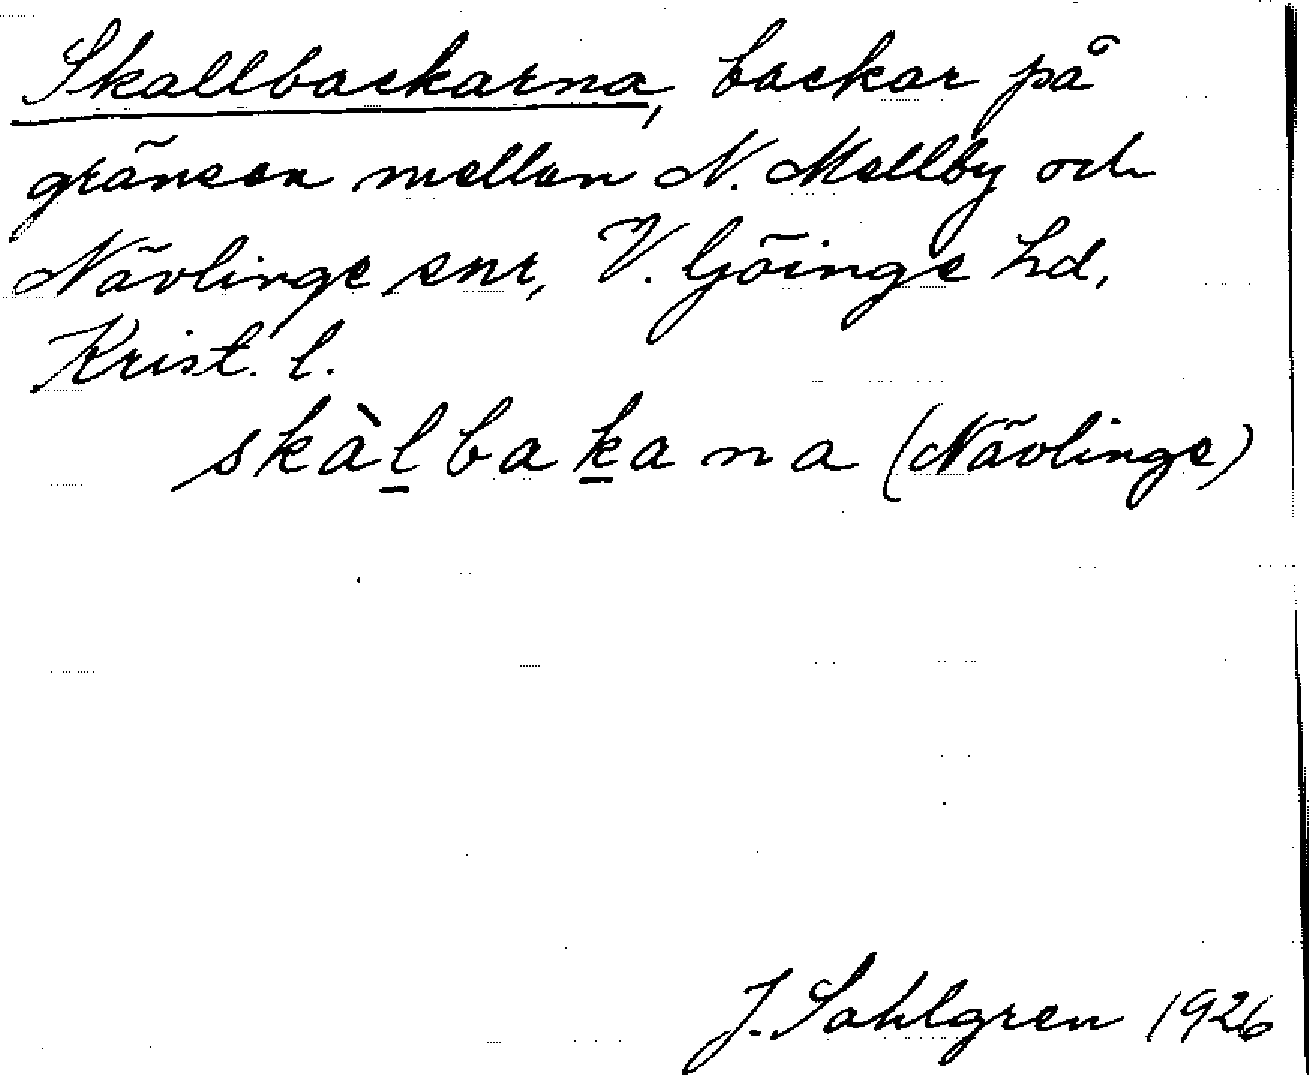 Skallbackarna, backar på
gränsen mellan N. Mellby och
Nävlinge snr, V. Göinge hd,
Krist. l.
skàl̲bak̲ana (Nävlinge)
J. Sahlgren 1926